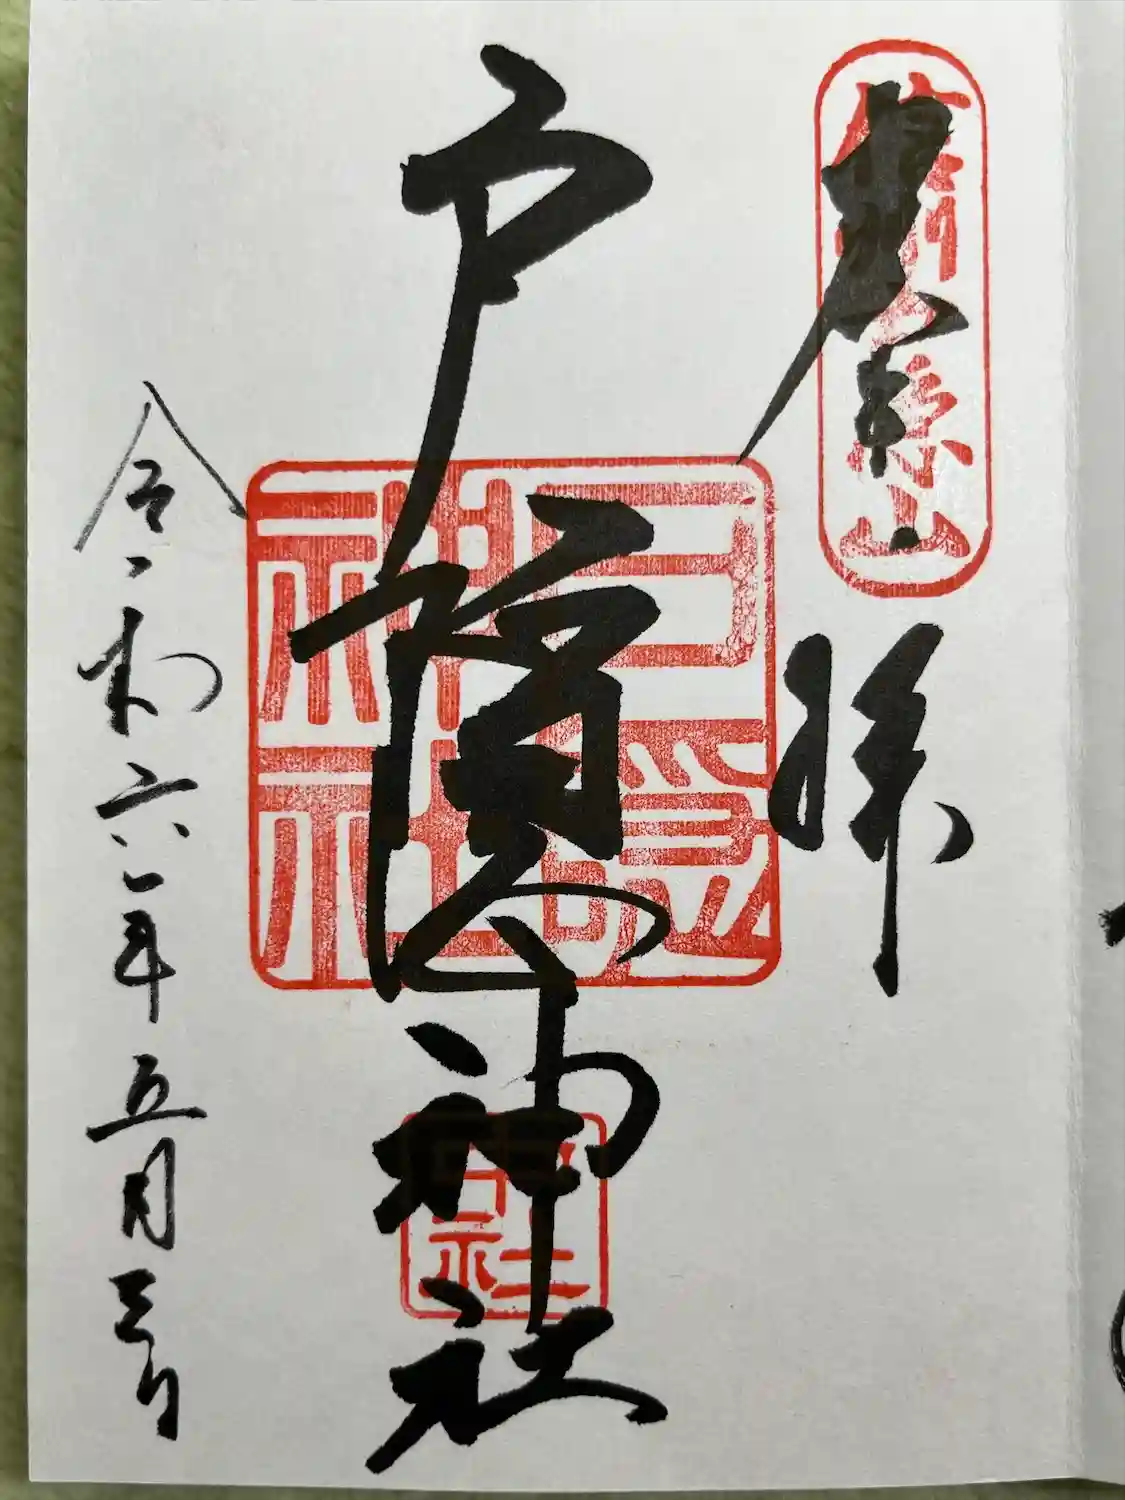 信州戸隠山
奉拝
戸隠神社
令和六年五月三日